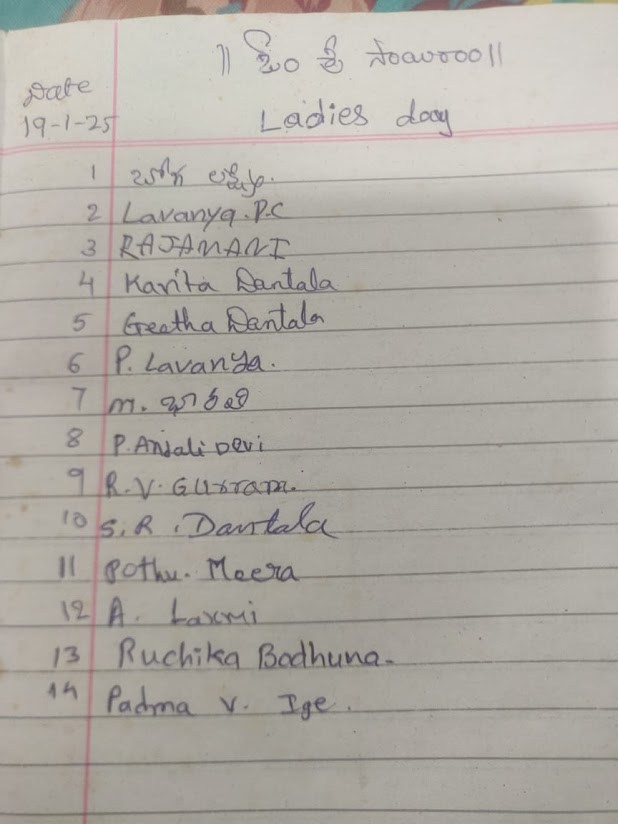 || ఓం శ్రీ సాయిరాం ||
Date
19-1-25
Ladies day
1 బోగ లక్ష్మి.
2 Lavanya.P.C
3 RAJAMANI
4 Kavita Dantala
5 Geetha Dantala
6 P. Lavanya.
7 m. భారతి
8 P. Anjali Devi
9 R.V. Gurram.
10 S. R. Dantala
11 Pothu. Meera
12 A. Laxmi
13 Ruchika Bodhuna.
14 Padma V. Ige.